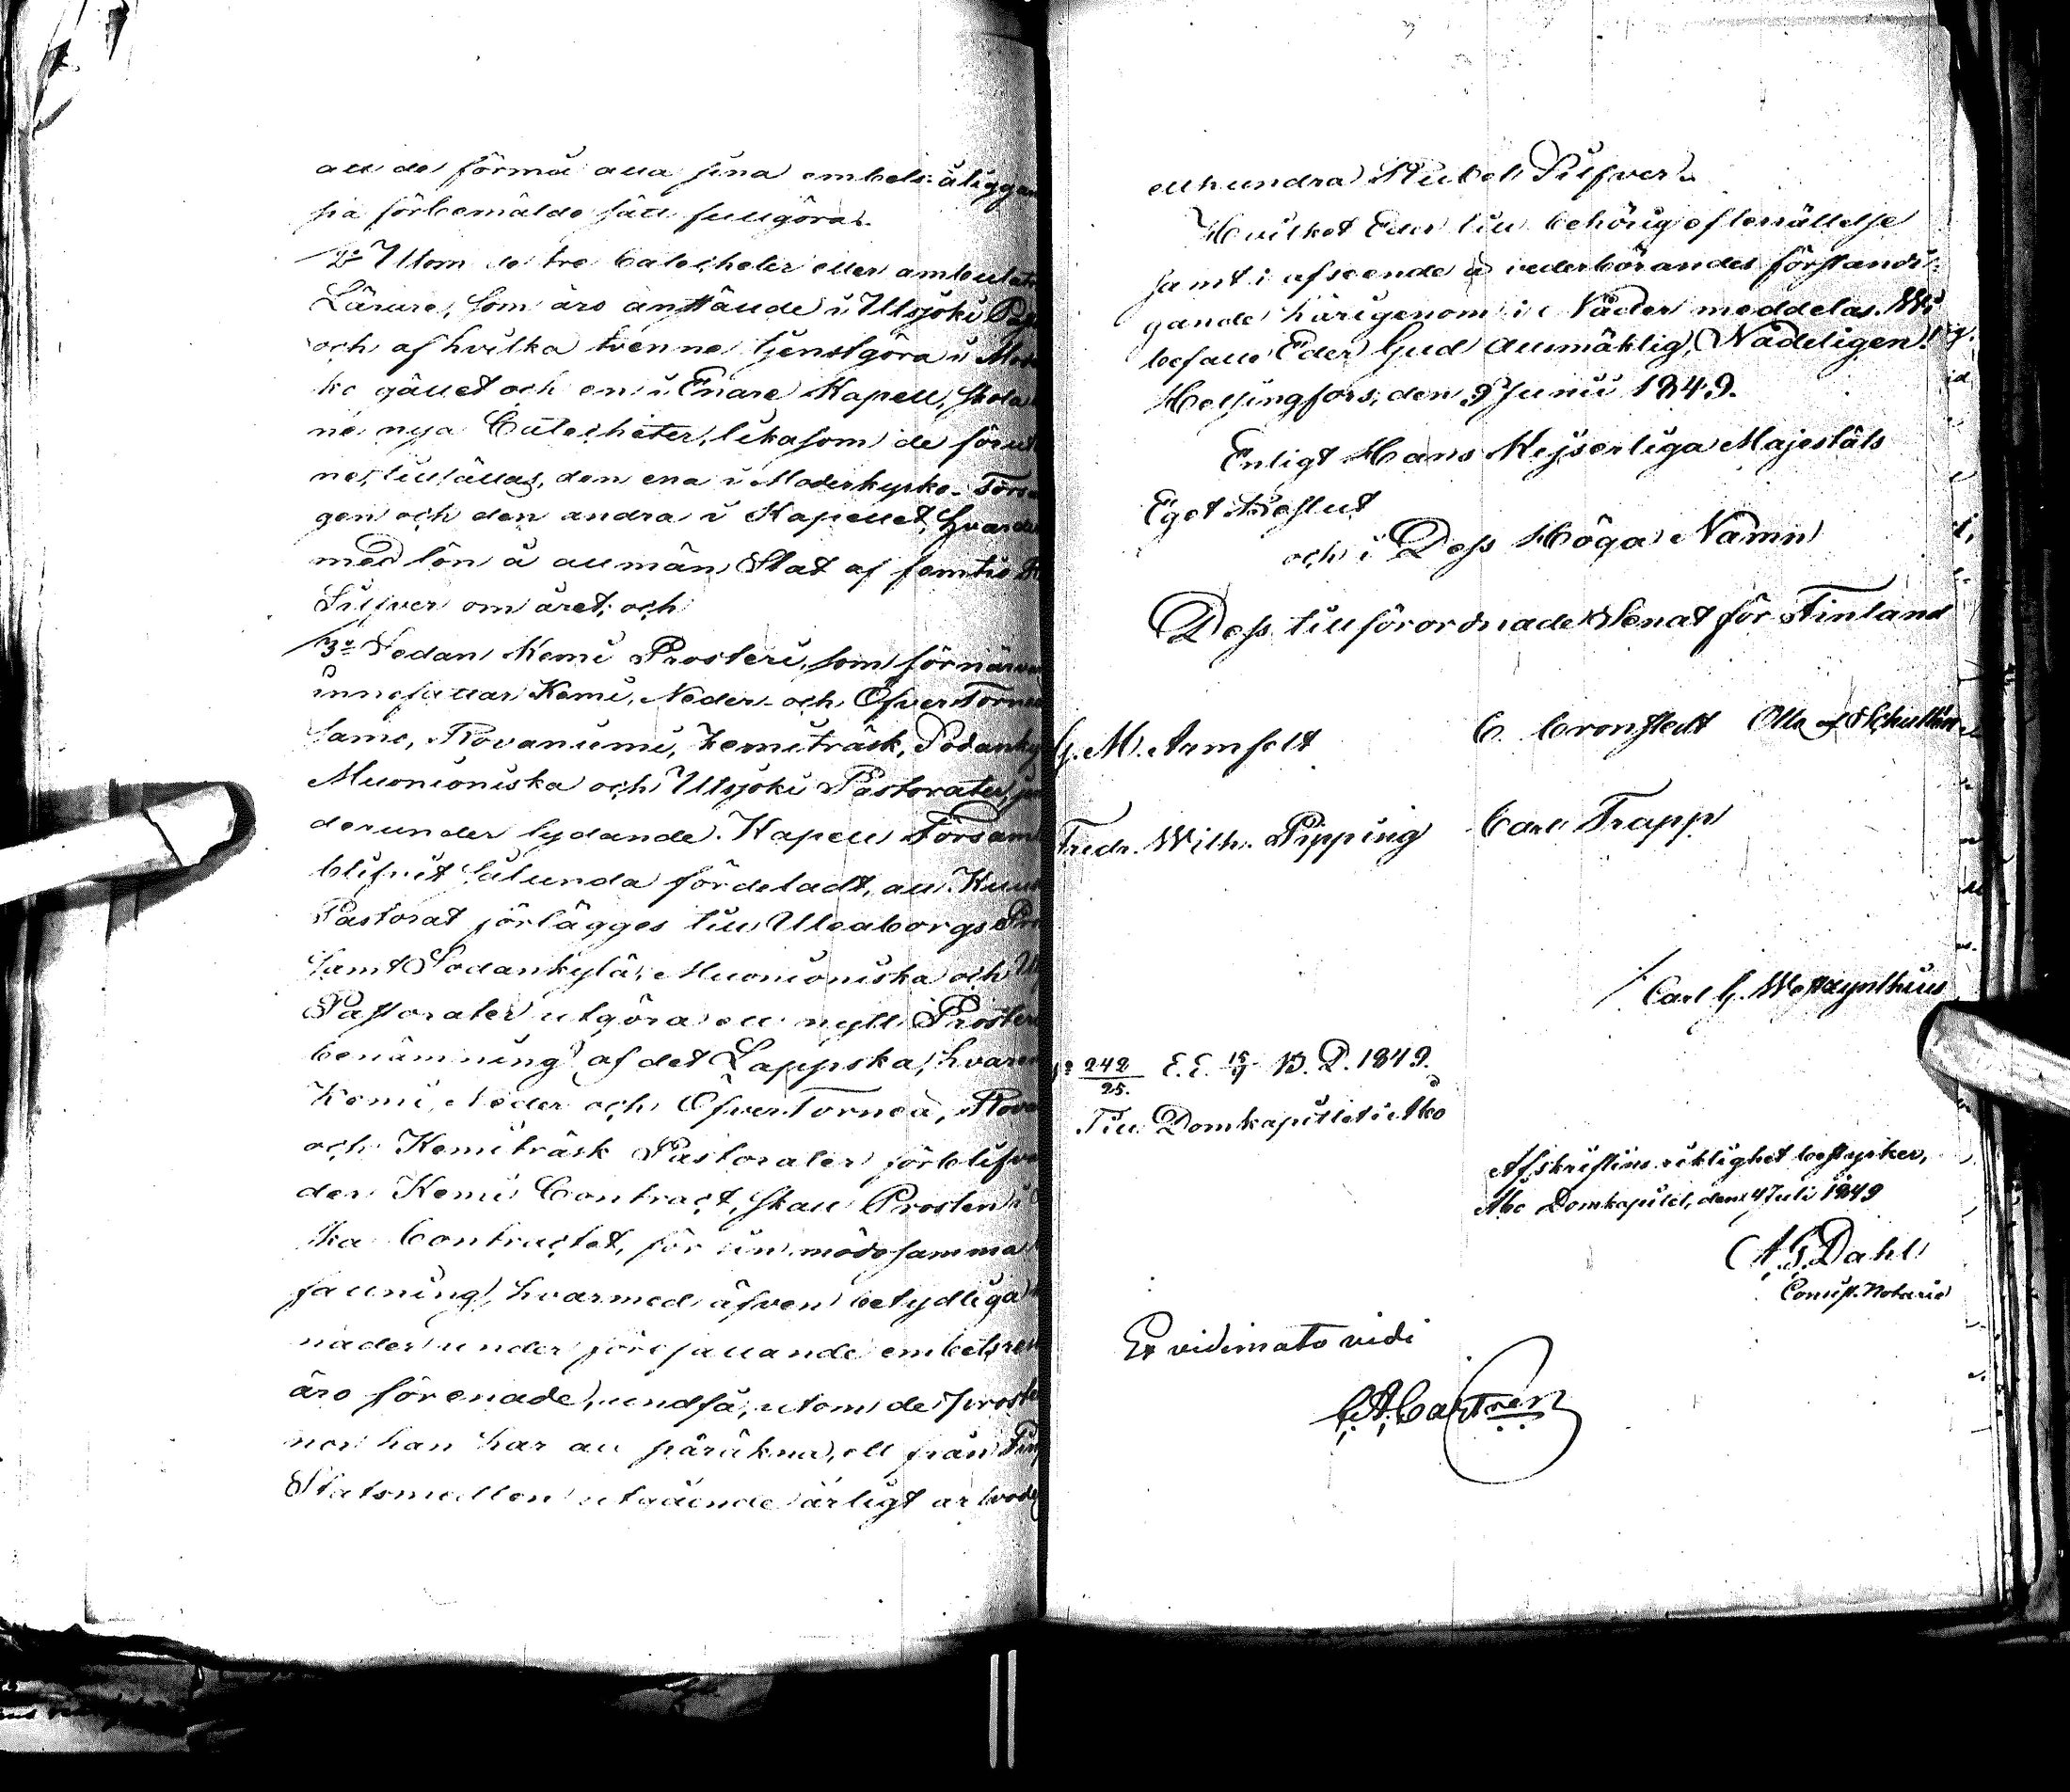 att de förmå alla sina embets åliggan
på förbemälde sätt fullgöra.
2o Utom de tre Catecheter eller ambulato
Lärare, som äro anstälde i Utsjoki Pas
och af hvilka tvenne tjenstgöra i Mod
ke gället och en i Enare Kapell, skola
ne nya Catecheter, likasom de förut
ne, tillsättas, den ena i Moderkyrko-Försa
gen och den andra i Kapellet, hvarde
med lön å allmän Stat af femtio R
Silfver om året; och
3o Sedan Kemi Prosteri, som förnärva
innefattar Kemi, Neder- och ÖfverTorneå
samo, Rovaniemi, Kemiträsk, Sodanky
Muonioniska och Utsjoki Pastorater, j
derunder lydande Kapell Församl
blifvit sålunda fördeladt, att Kuus
Pastorat förlägges till Uleaborgs Pro
samt Sodankylä, Muonioniska och Ut
Pastorater utgöra ett nytt Prosteri
benämning af det Lappska, hvare
Kemi, Neder och ÖfverTorneå, Rova
och Kemiträsk Pastorater förblifva
der Kemi Contract, skall Prosten i
ska Contractet, för sin mödosamma
fattning, hvarmed äfven betydliga
nader under förefallande embetsres
äro förenade, undfå, utom de proste
ner han har att påräkna, ett från Fin
Statsmedlen utgående årligt arfvode
etthundra Rubel Silfver.
Hvilket Eder till behörig efterrättelse
samt i afseende å vederbörandes förständi-
gande härigenom i Nåder meddelas. Wi
befalle Eder Gud Allsmäktig, Nådeligen.
Helsingfors, den 9 Junii 1849.
Enligt Hans Kejserliga Majestäts
Eget Beslut
och i Dess Höga Namn
Dess tillförordnade Senat för Finland
G. M. Armfelt C. Cronstedt Otto af Schultén
Fredr. Wilh. Pipping Carl Trapp
Carl G. Westzynthius
No 242/25. E. E. 15/7 B. D. 1849.
Till Domkapitlet i Åbo
Afskriftens riktighet bestyrker,
Åbo Domkapitel, den 4 Juli 1849
A. G. Dahl
Consist. Notarie
Ex vidimato vidi
C A Castrén